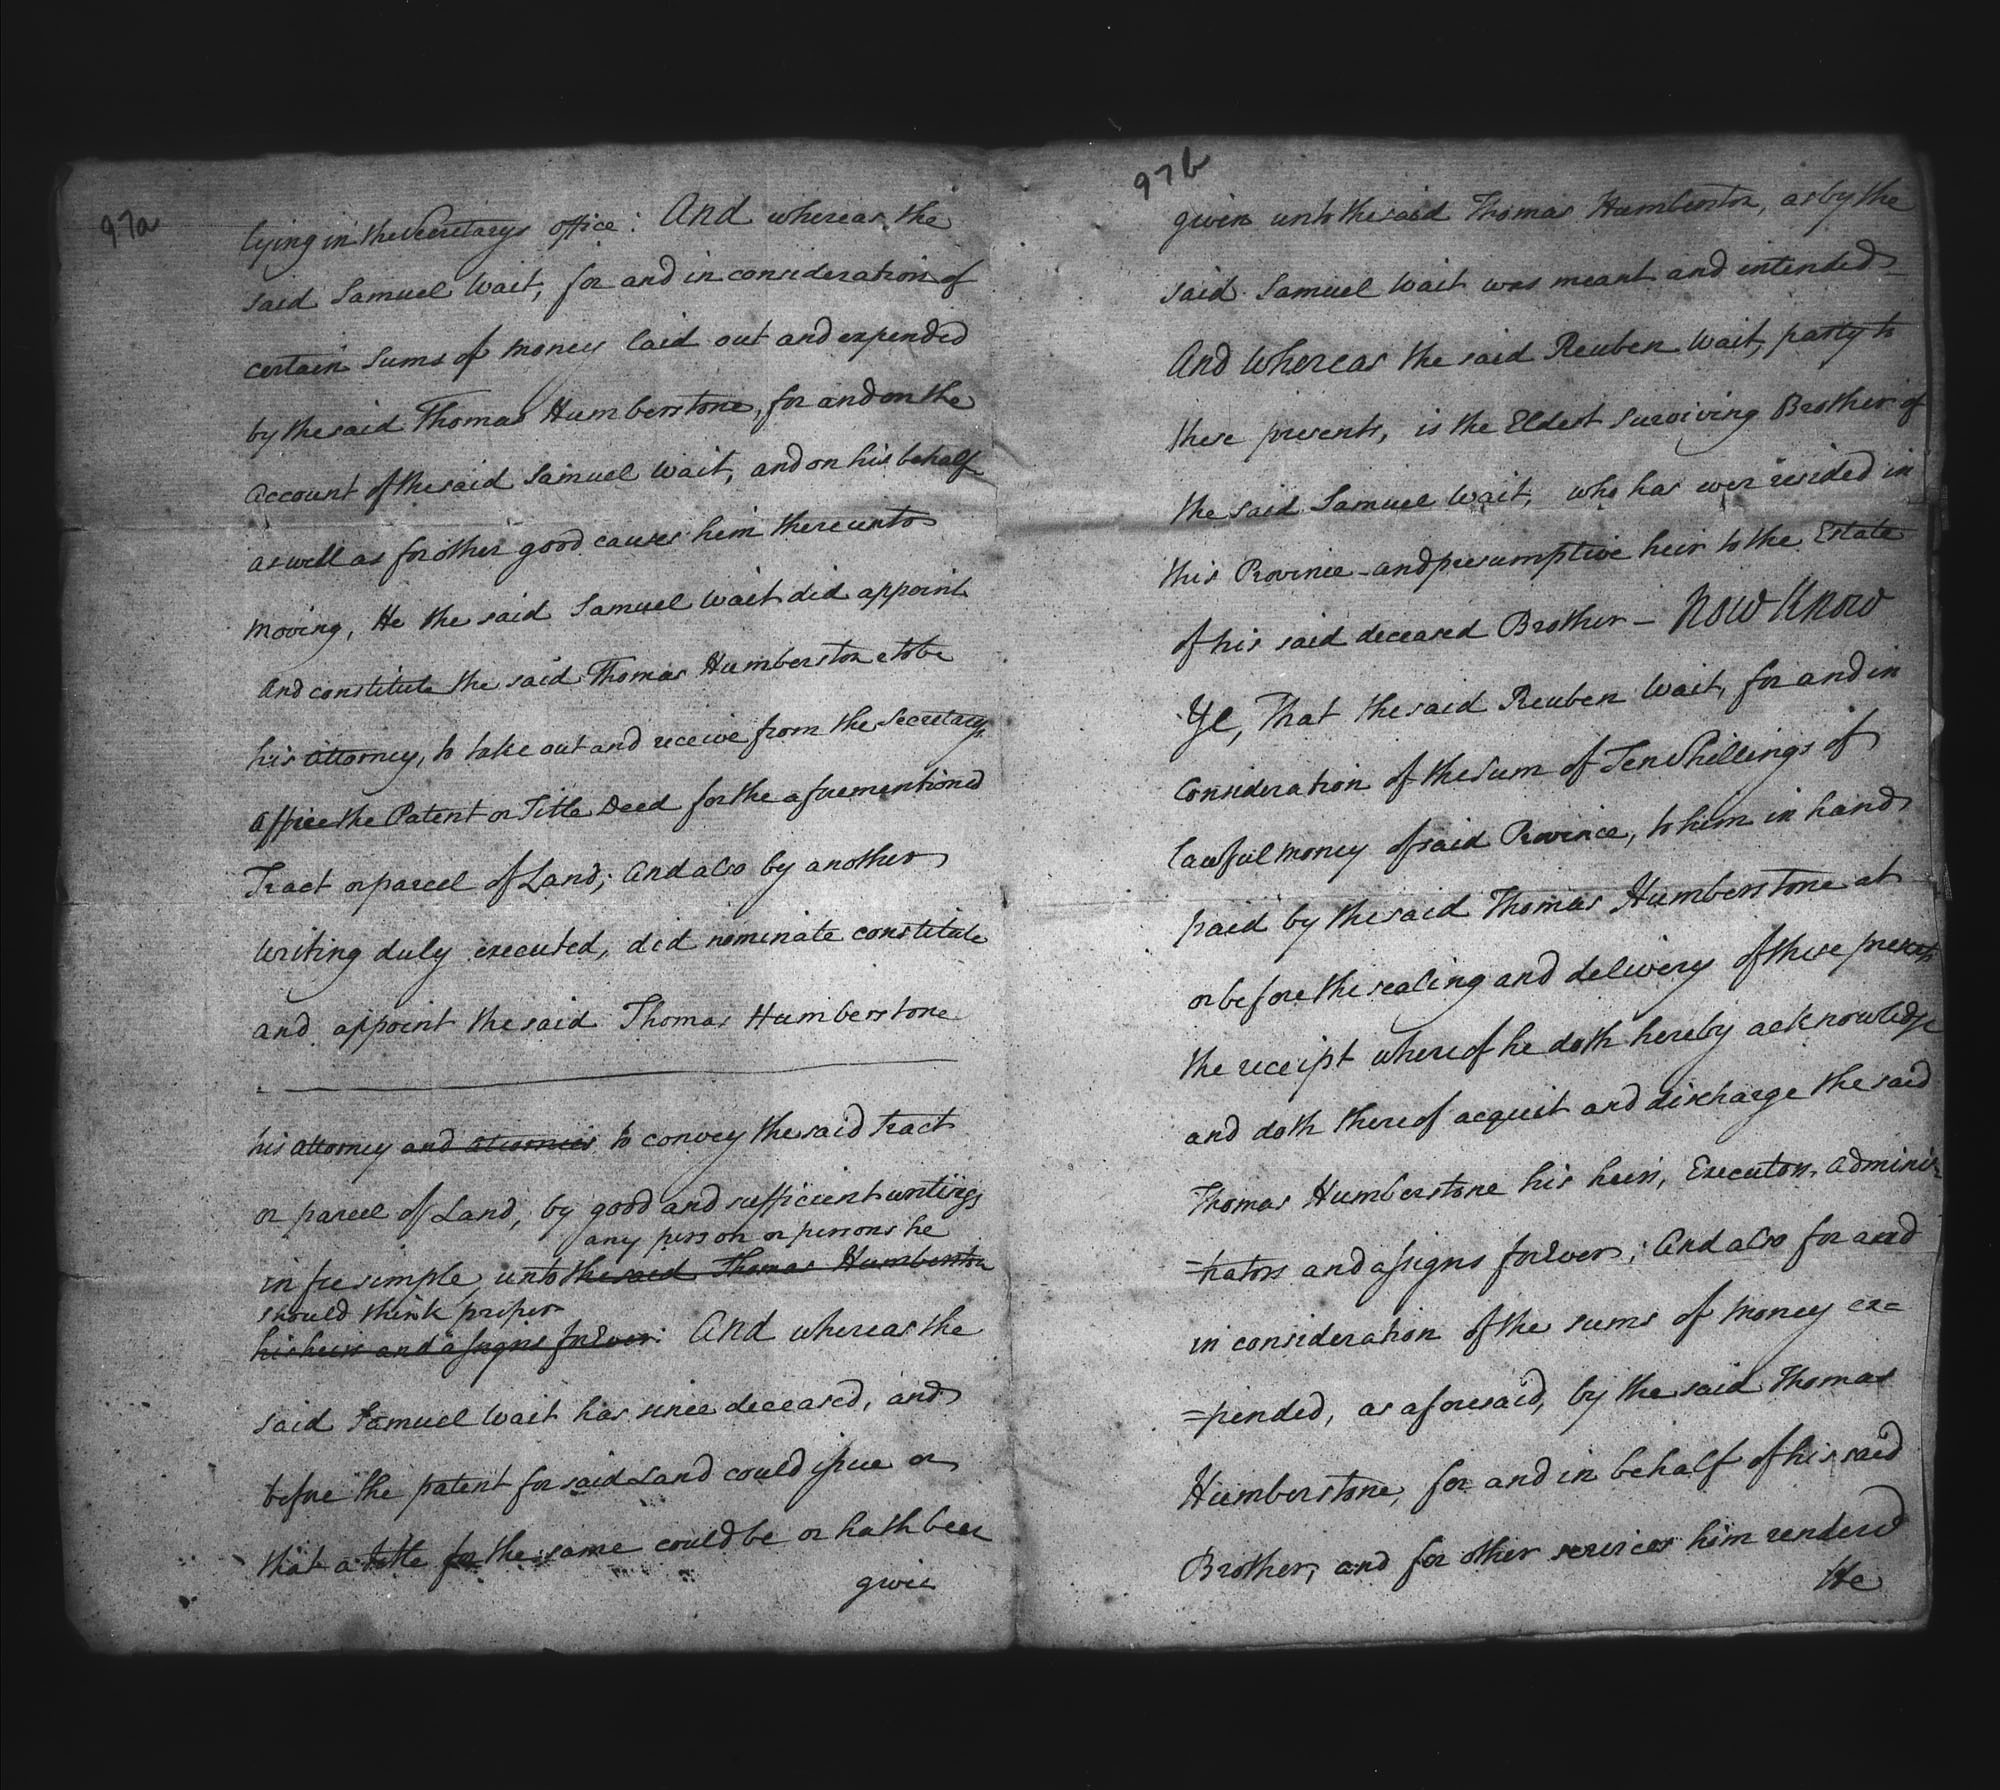 97a
lying in the Secretarys office: And whereas the
said Samuel Wait, for and in consideration of
certain Sums of money laid out and expended
by the said Thomas Humberstone, for and on the
account of the said Samuel Wait, and on his behalf
as well as for other good causes him thereunto
moving, He the said Samuel Wait did appoint
and constitute the said Thomas Humberstone to be
his attorney, to take out and receive from the Secretarys
office the Patent or Title Deed for the aforementioned
Tract or parcel of Land; And also by another
Writing duly executed, did nominate constitute
and appoint the said Thomas Humberstone
his attorney and attornies to convey the said tract
or parcel of Land, by good and sufficient writings
any person or persons he
in fee simple unto the said Thomas Humberston
should think proper
his heirs and assigns forever: And whereas the
said Samuel Wait has since deceased, and
before the patent for said Land could issue or
that a title for the same could be or hath been
give
97b
given unto the said Thomas Humberston, as by the
said Samuel Wait was meant and intended
And Whereas the said Reuben Wait, party to
these presents, is the Eldest surviving Brother of
the said Samuel Wait, who has ever resided in
this Province - and presumptive heir to the Estate
of his said deceased Brother - Now Know
Ye, That the said Reuben Wait, for and in
Consideration of the Sum of Ten Shillings of
lawful money of said Province, to him in hand
paid by the said Thomas Humberstone at
or before the sealing and delivery of these presents
the receipt whereof he doth hereby acknowledge
and doth thereof acquit and discharge the said
Thomas Humberstone his heirs, Executors, Adminis=
=trators and assigns forever; And also for and
in consideration of the sums of money ex=
=pended, as aforesaid, by the said Thomas
Humberstone, for and in behalf of his said
Brother, and for other services him renderd
He